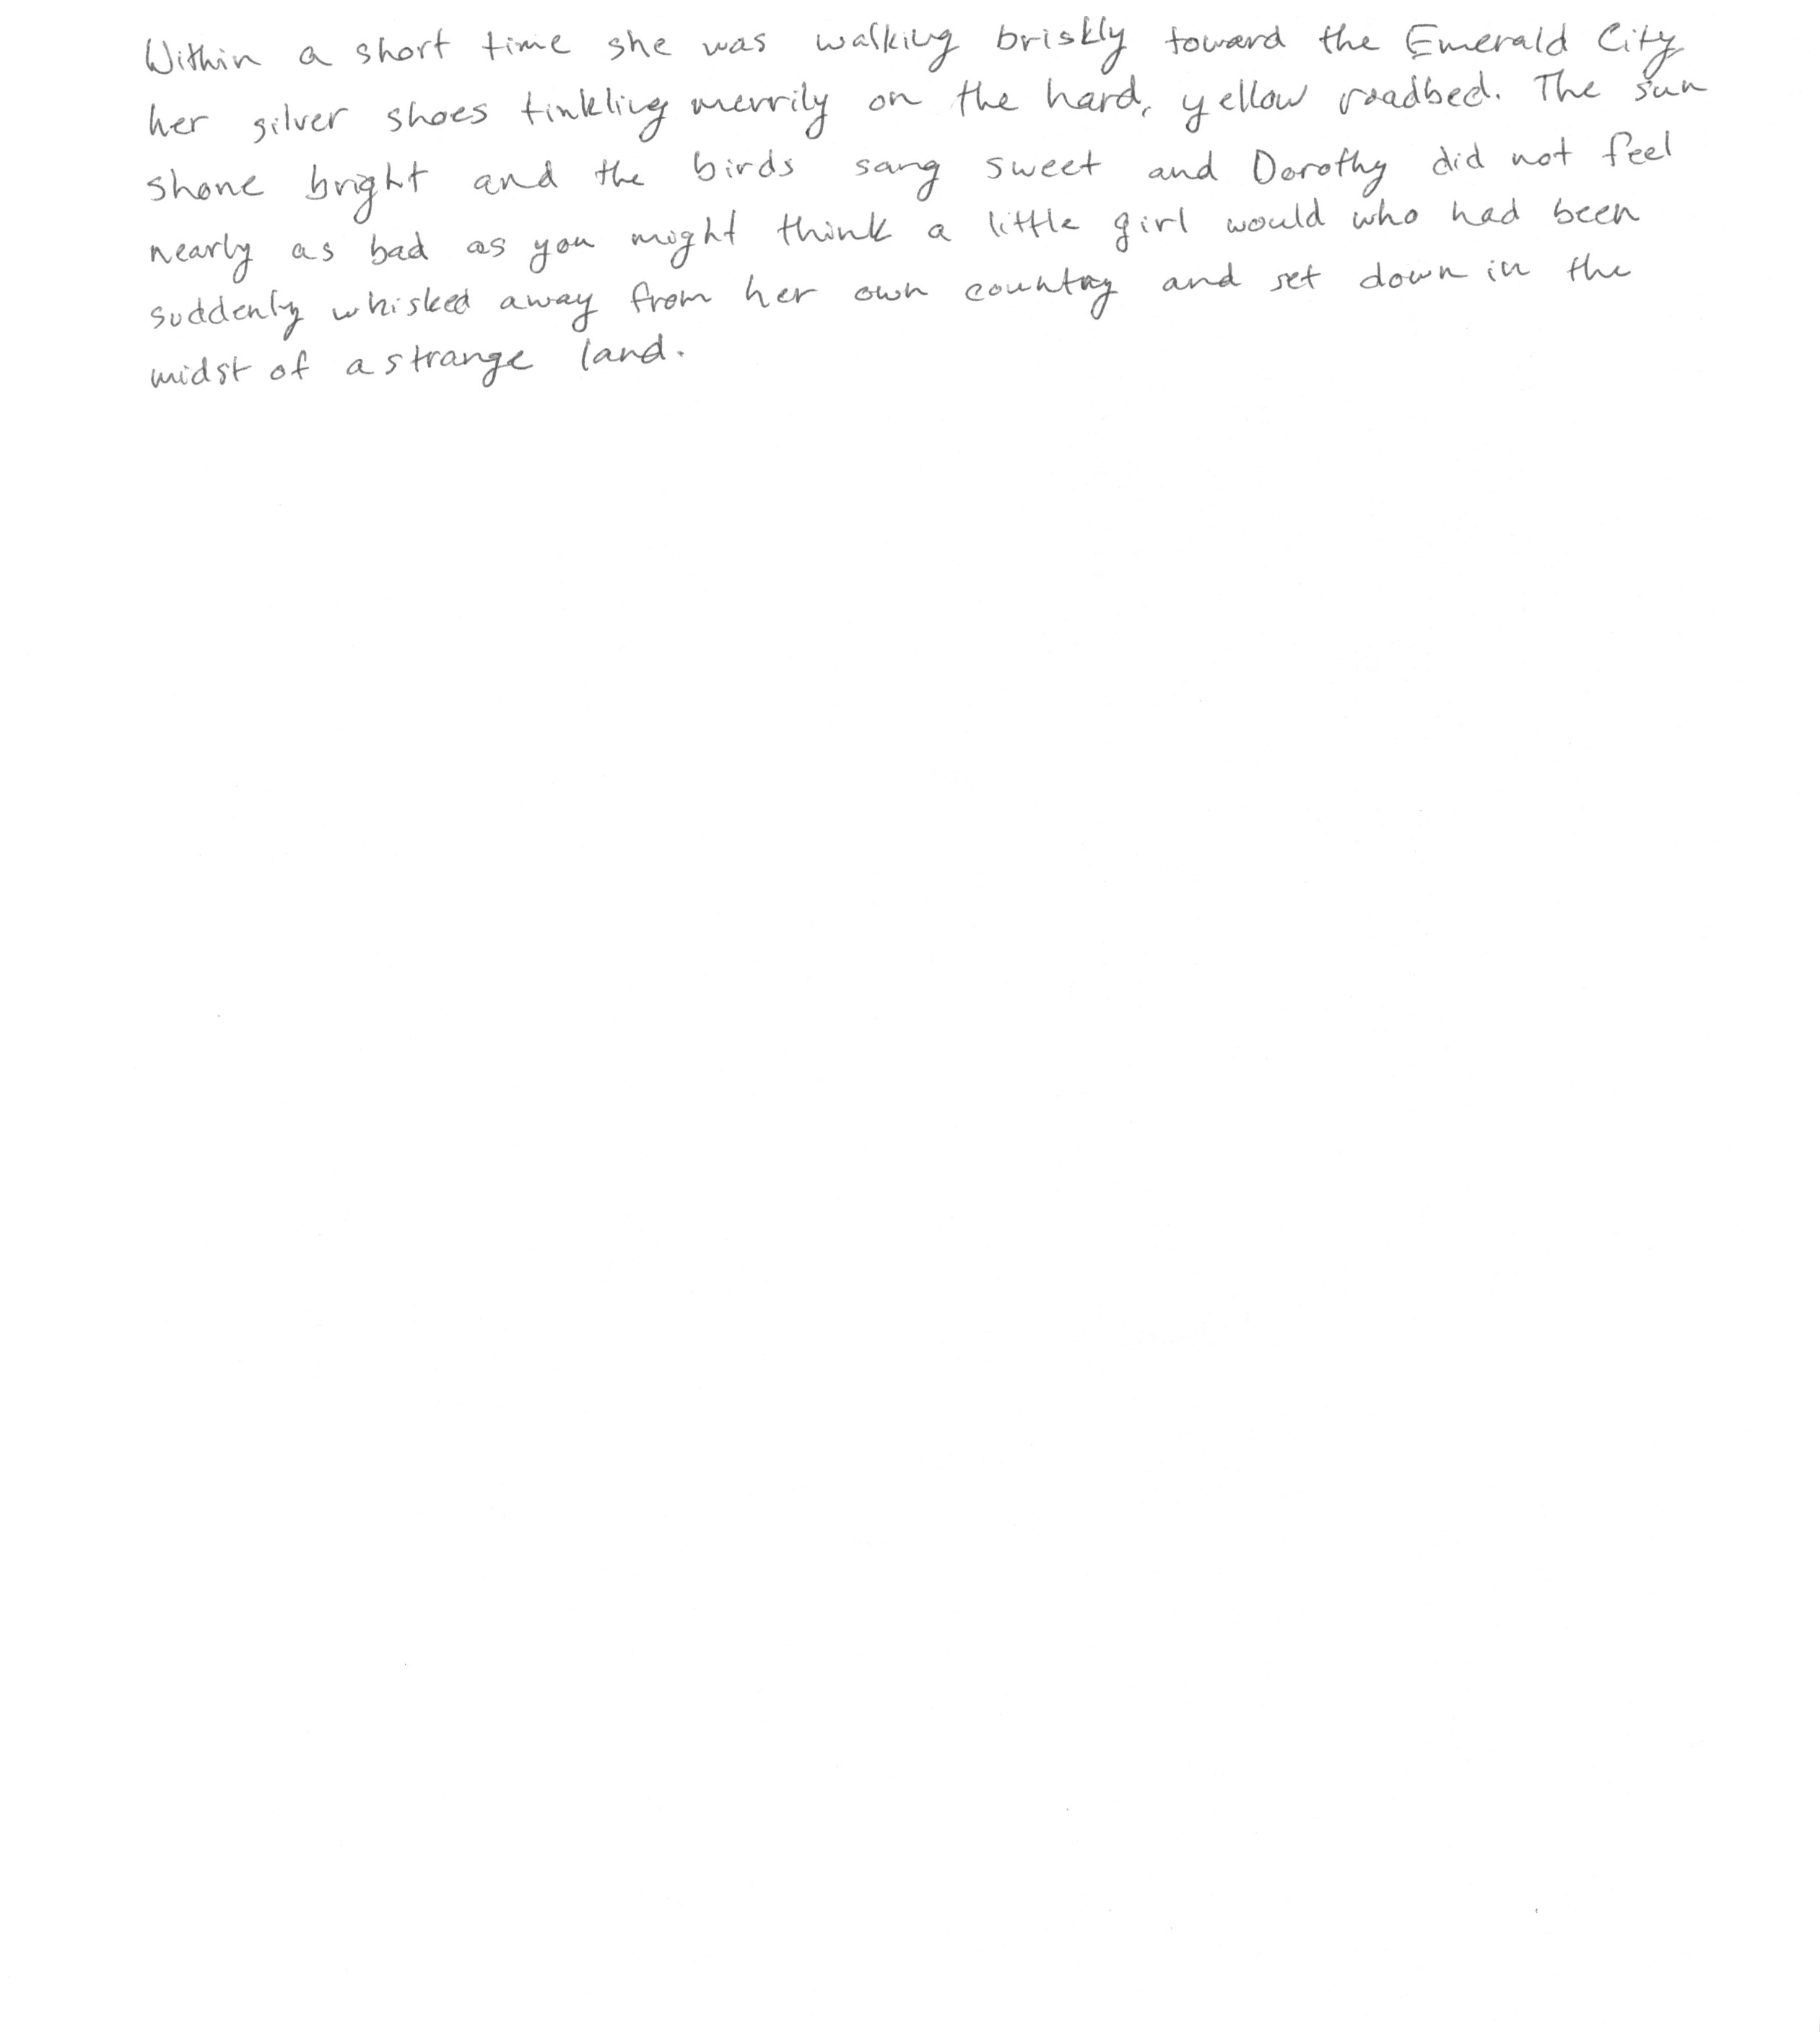 Within a short time she was walking briskly toward the Emerald City
her silver shoes tinkling merrily on the hard, yellow roadbed. The sun
shone bright and the birds sang sweet and Dorothy did not feel
nearly as bad as you might think a little girl would who had been
suddenly whisked away from her own country and set down in the
midst of a strange land.